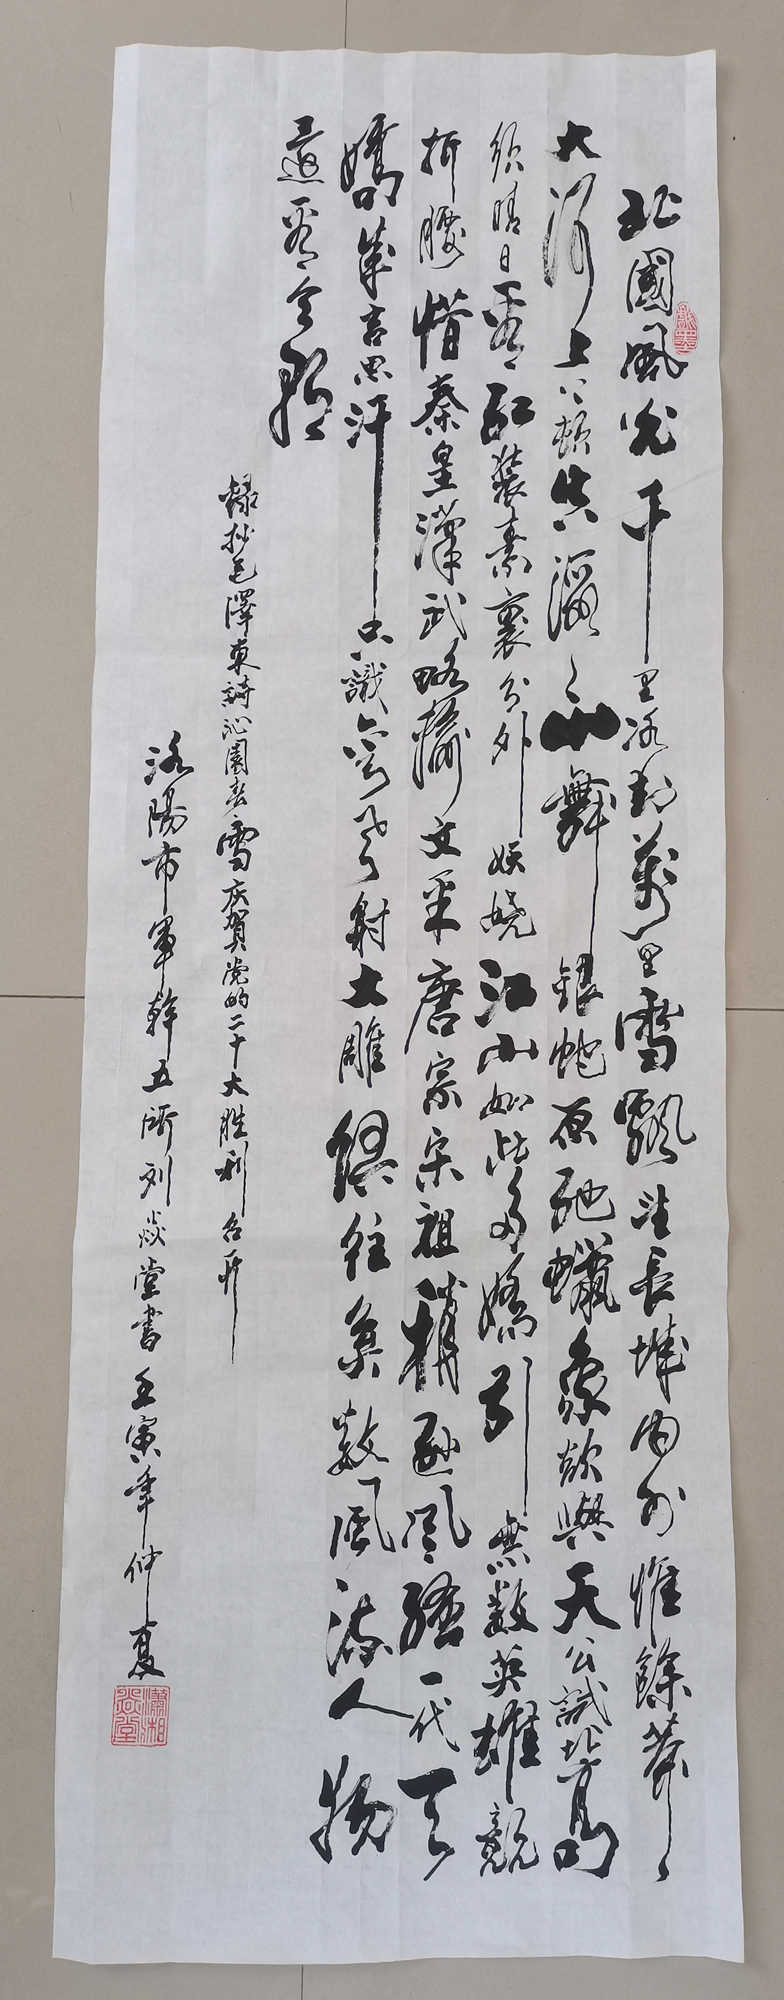 北國風光千里冰封萬里雪飄望長城內外惟餘莽〻
大河上下頓失滔〻山舞銀蛇原馳蠟象欲與天公試比高
須晴日看紅裝素裹分外妖嬈江山如此多嬌引無數英雄競
折腰惜秦皇漢武略輸文采唐宗宋祖稍遜風騷一代天
嬌成吉思汗只識彎弓射大雕俱往矣数風流人物
還看今朝
録抄毛澤東詩沁園春雪庆贺党的二十大胜利召开
洛陽市軍幹五所列焱堂書壬寅年仲夏
瀟湘
焱堂